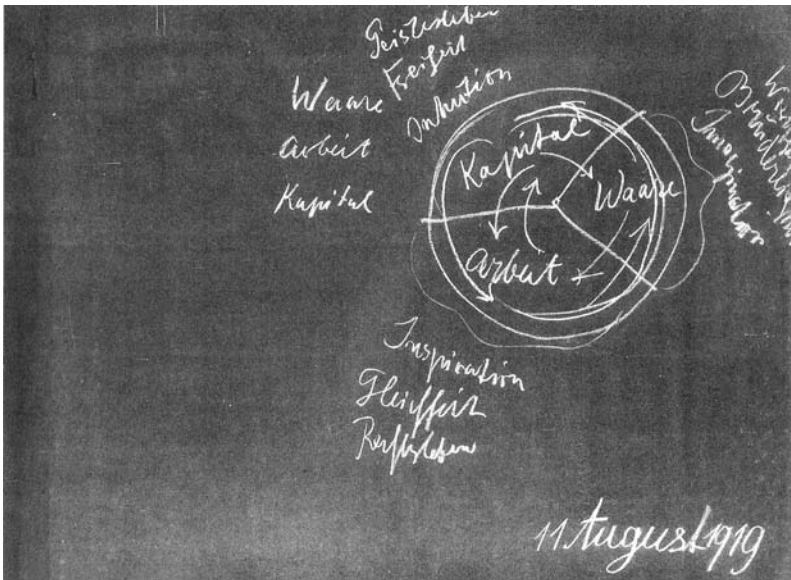 Geistesleben
Freiheit
Intuition
Waare
Arbeit
Kapital
Kapital
Waare
Arbeit
Wirtschaftsleben
Brüderlichkeit
Imagination
Inspiration
Gleichheit
Rechtsleben
11. August 1919